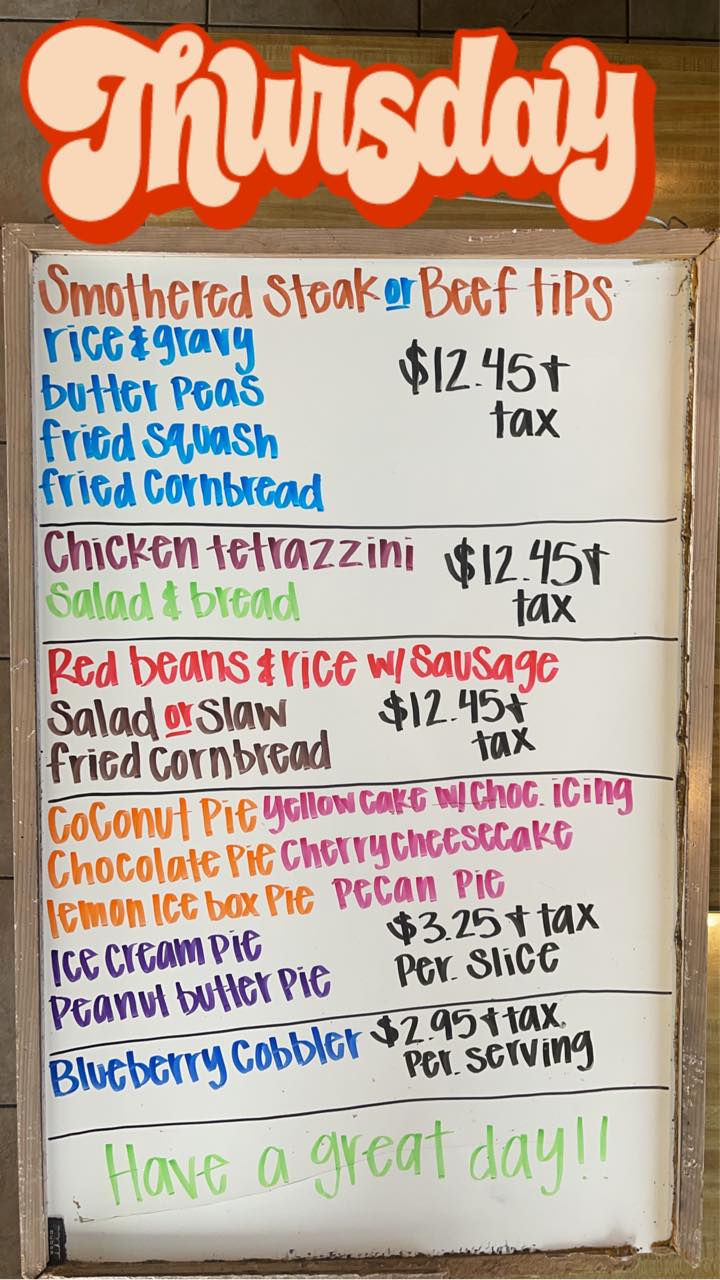 Thursday
Smothered Steak or Beef tips
rice & gravy
butter Peas
fried Squash
fried Cornbread
$12.45 + tax
Chicken tetrazzini
Salad & bread
$12.45 + tax
Red beans & rice w/ Sausage
Salad or Slaw
fried Cornbread
$12.45 + tax
Coconut Pie yellow cake w/ choc. icing
Chocolate Pie Cherry cheesecake
lemon Ice box Pie Pecan Pie
Ice Cream Pie
Peanut butter Pie
$3.25 + tax
Per. Slice
Blueberry Cobbler $2.95 + tax.
Per. serving
Have a great day!!